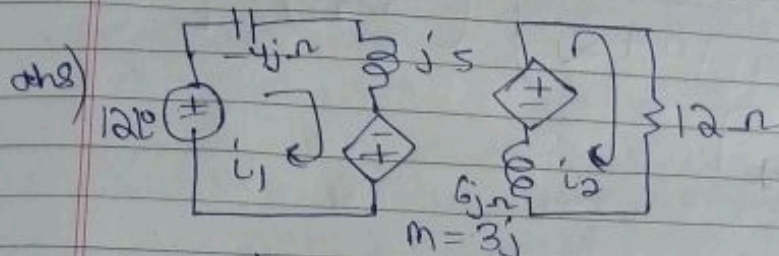 ans)
-4jΩ
j5
12∠0°
i₁
± 
-+
+-
6jΩ
i₂
12Ω
m = 3j